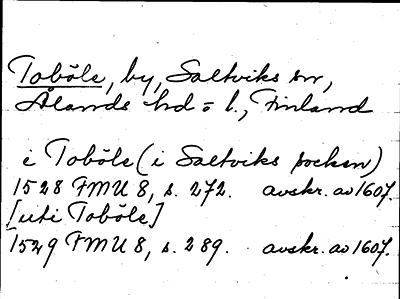 Toböle, by, Saltviks sn,
Ålands hd o l., Finland
i Toböle (i Saltviks socken)
1528 FMU 8, s. 272. avskr. av 1607.
[uti Toböle]
1529 FMU 8, s. 289. avskr. av 1607.